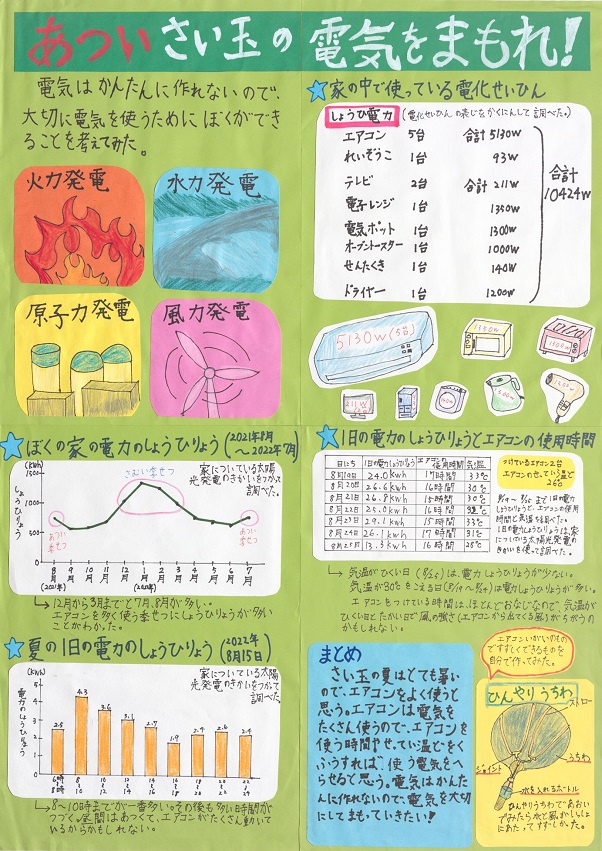 あついさい玉の電気をまもれ!
電気はかんたんに作れないので、
大切に電気を使うためにぼくができ
ることを考えてみた。
火力発電
水力発電
原子力発電
風力発電
家の中で使っている電化せいひん
しょうひ電力
エアコン 5台 合計5130W
れいぞうこ 1台 93W
テレビ 2台 合計211W
電子レンジ 1台 1350W
電気ポット 1台 1300W
オーブントースター 1台 1000W
せんたくき 1台 140W
ドライヤー 1台 1200W
合計
10424W
5130W(5台)
1350W
ぼくの家の電力のしょうひりょう(2021年8月
〜2022年7月)
(kWh)
しょうひりょう
1500
1000
500
0
さむい季せつ
家についている太陽
光発電のきかいをつかって
調べた。
あつい
季せつ
あつい
季せつ
8月 9月 10月 11月 12月 1月 2月 3月 4月 5月 6月 7月
(2021年)
12月から3月までと7月、8月が多い。
エアコンを多く使う季せつにしょうひりょうが多い
ことがわかった。
夏の1日の電力のしょうひりょう(2022年
8月15日)
(kWh)
電力のしょうひりょう
家についている太陽
光発電のきかいをつかって
調べた
5
4
3
2
1
0
2.5 4.3 3.6 3.1 2.7 1.9 2.4 2.6 2.4
8〜10時までが一番多い。その後も多い時間が
つづく。昼間はあつくて、エアコンがたくさん動いて
いるからかもしれない。
1日の電力のしょうひりょうとエアコンの使用時間
日にち 1日の電力しょうひりょう エアコンの使用時間 気温
8月19日 24.0kWh 17時間 33℃
8月20日 26.6kWh 16時間 30℃
8月21日 26.8kWh 15時間 30℃
8月22日 25.0kWh 16時間
8月23日 29.1kWh 15時間 33℃
8月24日 26.1kWh 17時間 31℃
8月25日 16時間 28℃
つけているエアコン2台
エアコンのせってい温ど
26℃
8/19〜8/25まで1日の電力
しょうひりょうと、エアコンの使用
時間と気温を調べた。
1日の電力しょうひりょうは、家
についている太陽光発電の
きかいを使って調べた。
気温がひくい日(8/25)は、電力しょうひりょうが少ない。
気温が30℃をこえる日(8/19〜8/24)は電力しょうひりょうが多い。
エアコンをつけている時間は、ほとんどおなじなので、気温が
ひくい日とたかい日で風の強さ(エアコンから出てくる風)がちがうの
かもしれない。
まとめ
さい玉の夏はとても暑い
ので、エアコンをよく使うと
思う。エアコンは電気を
たくさん使うので、エアコンを
使う時間やせってい温どをく
ふうすれば、使う電気をへ
らせると思う。電気はかんた
んに作れないので、電気を大切
にしてまもっていきたい!
エアコンいがいのもの
ですずしくできるものを
自分で作ってみた。
ひんやりうちわ
ストロー
うちわ
ジョイント
水を入れるボトル
ひんやりうちわであおい
でみたら水と風がいっしょ
にあたってすずしかった。